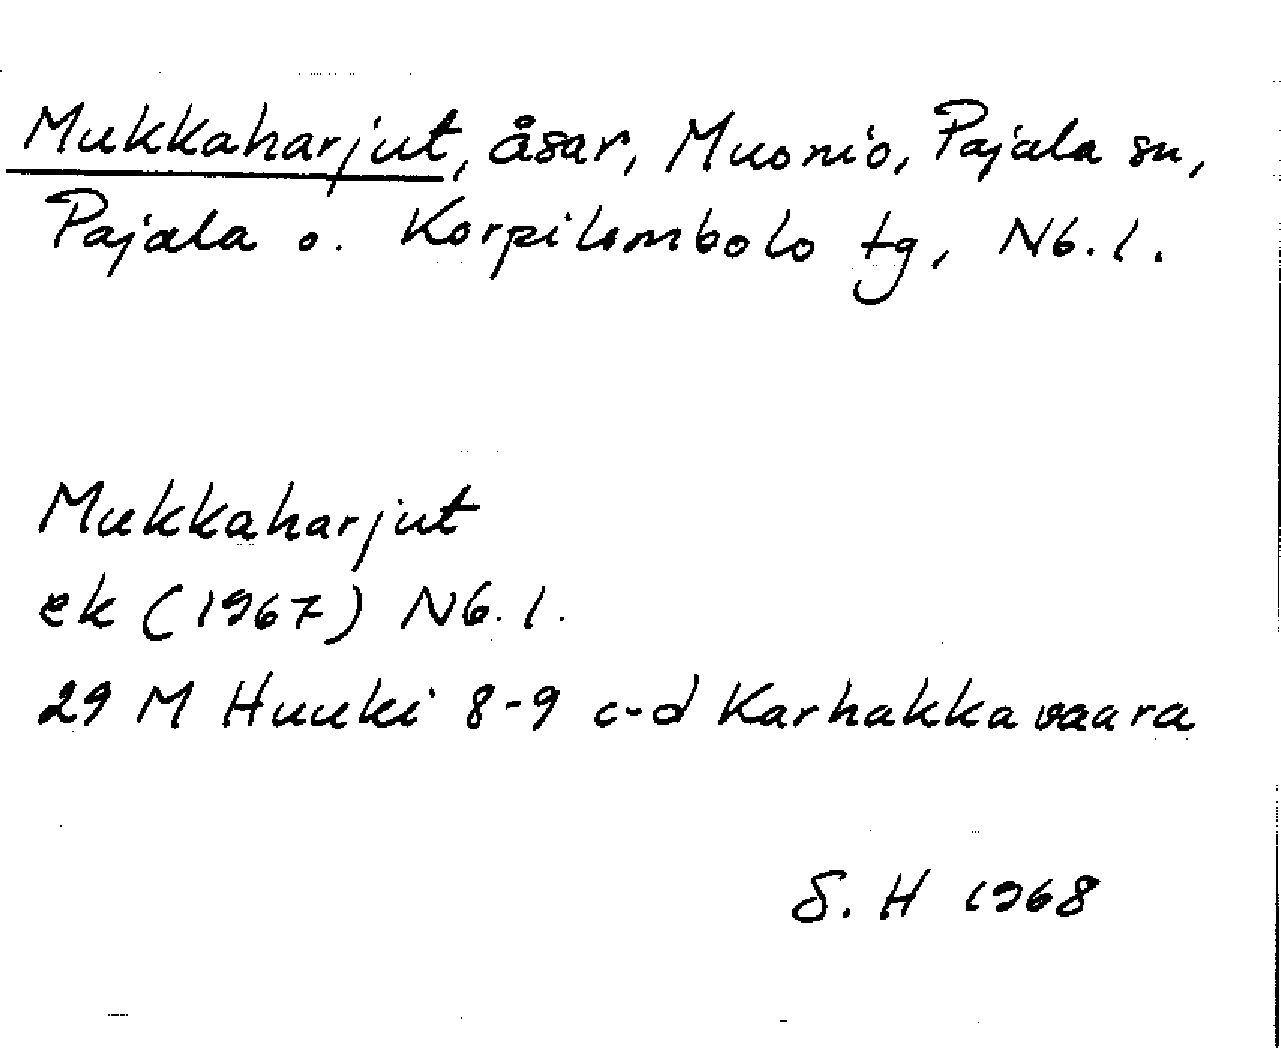 Mukkaharjut, åsar, Muonio, Pajala sn,
Pajala o. Korpilombolo tg, Nb. l.
Mukkaharjut
ek (1967) Nb. l.
29 M Huuki 8-9 c-d Karhakkavaara
S. H 1968